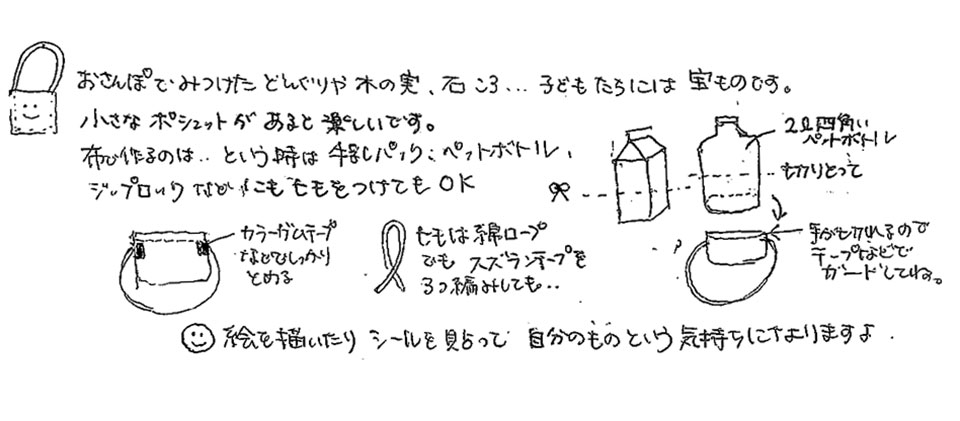 おさんぽでみつけた どんぐりや 木の実、石ころ... 子どもたちには 宝ものです。
小さな ポシェットが あると 楽しいです。
布で作るのは.. という時は 牛乳パック、ペットボトル、
ジップロック などにも ももをつけても OK
2ℓ四角い
ペットボトル
切りとって
カラーガムテープ
などでしっかり
とめる
ももは 綿ロープ
でも スズランテープを
3つ編みしても..
手がきれるので
テープなどで
ガードしてね。
絵を描いたり シールを貼って 自分のものという気持ちになりますよ